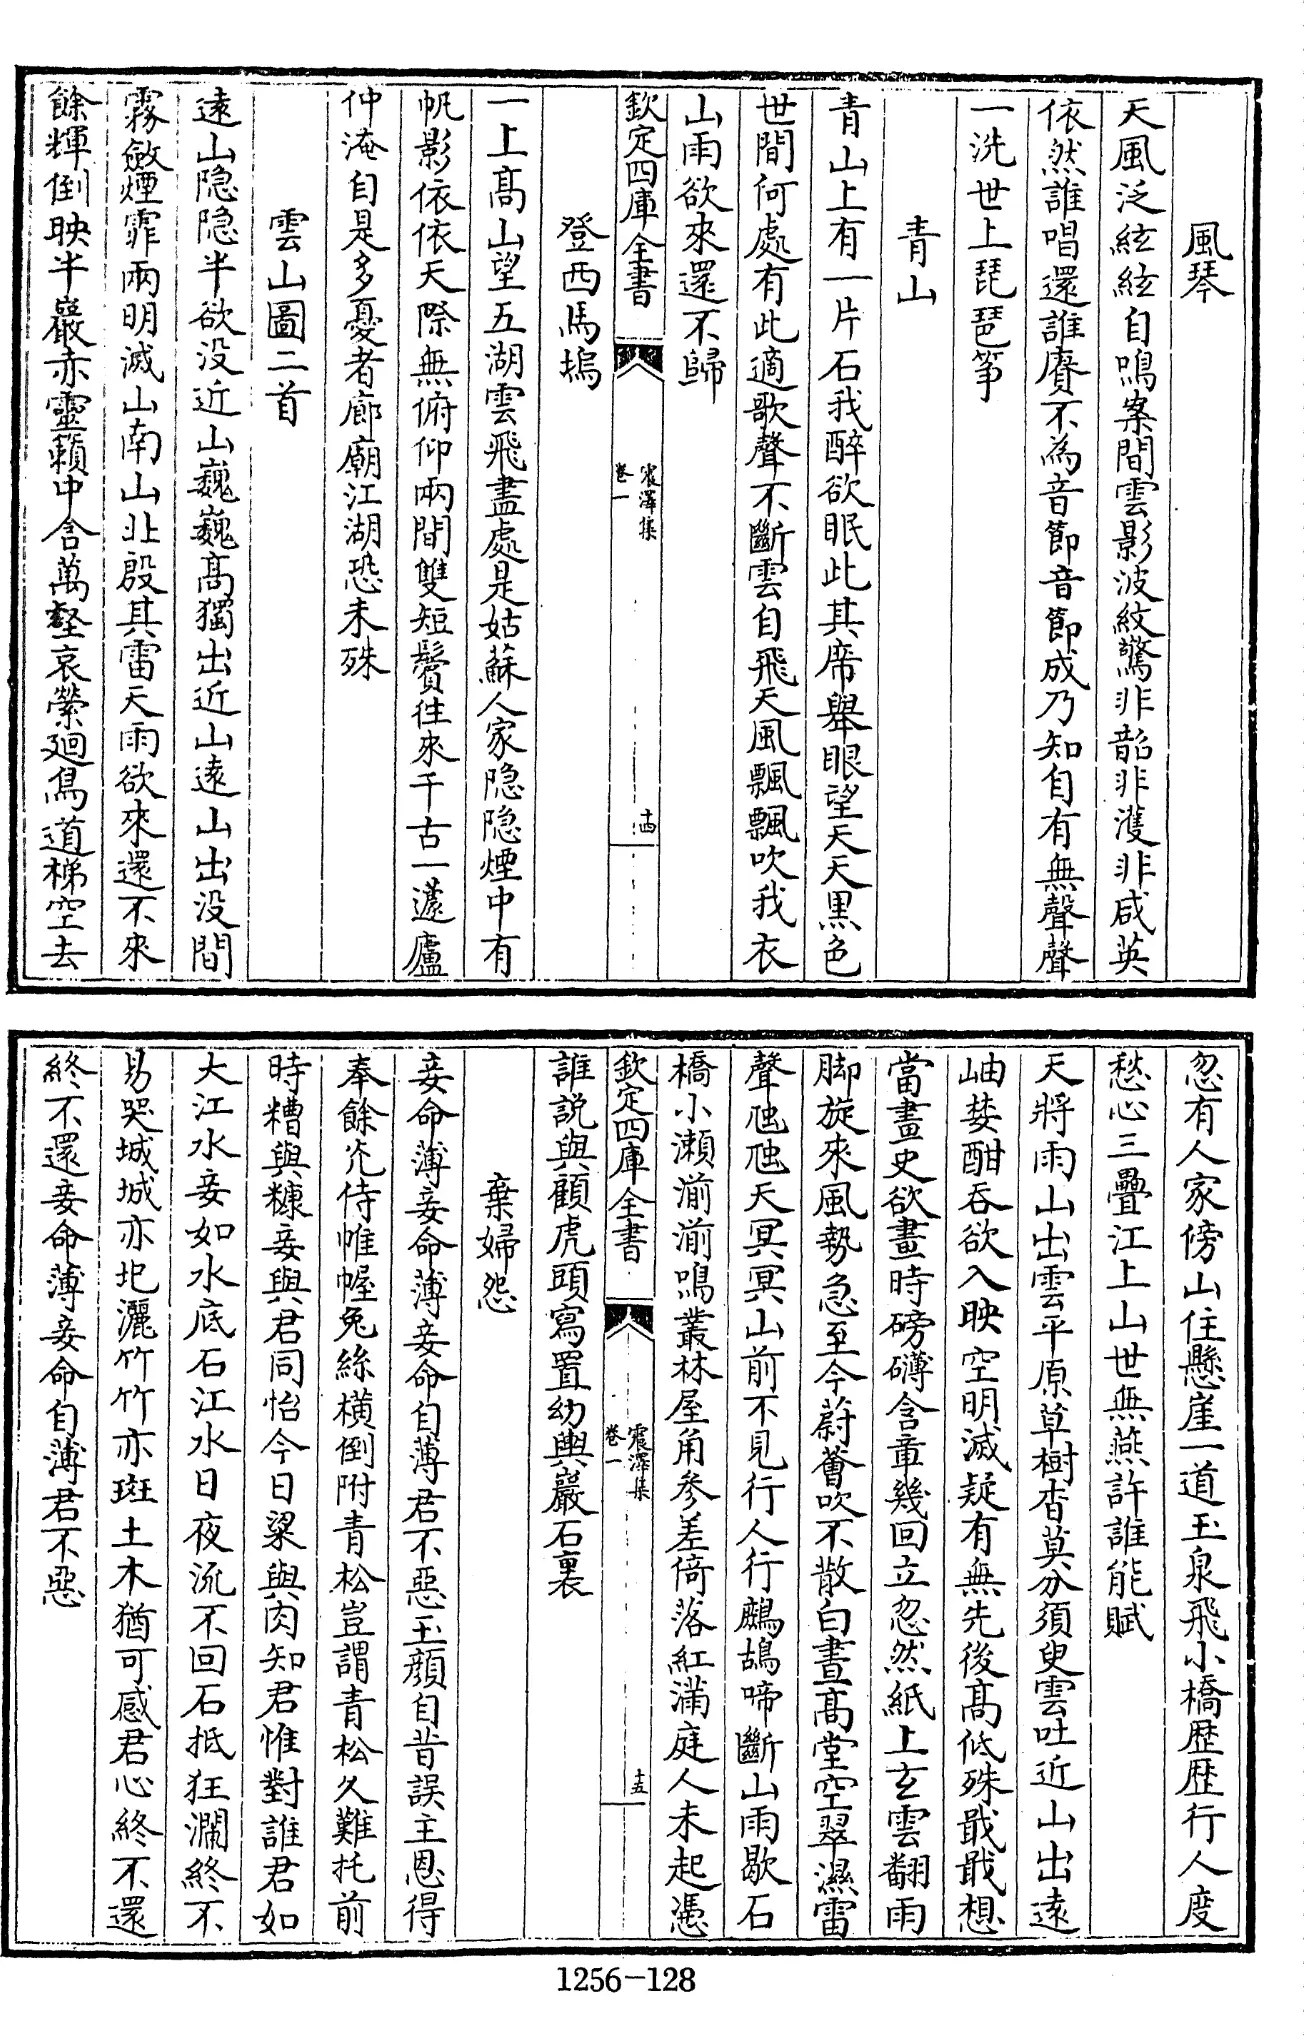 風琴
天風泛絃絃自鳴案間雲影波紋驚非韶非濩非咸英
依然誰唱還誰賡不為音節音節成乃知自有無聲聲
一洗世上琵琶箏
青山
青山上有一片石我醉欲眠此其席舉眼望天天黒色
世間何處有此適歌聲不斷雲自飛天風飄飄吹我衣
山雨欲來還不歸
欽定四庫全書
震澤集
卷一
十四
登西馬塢
一上髙山望五湖雲飛盡處是姑蘇人家隠隠煙中有
帆影依依天際無俯仰兩間雙短鬢往來千古一蘧廬
仲淹自是多憂者廊廟江湖恐未殊
雲山圖二首
逺山隠隠半欲没近山巍巍髙獨出近山逺山出没間
霧斂煙霏兩明滅山南山北殷其雷天雨欲來還不來
餘輝倒映半巖赤靈籟中含萬壑哀縈廻鳥道梯空去
忽有人家傍山住懸崖一道玉泉飛小橋歴歴行人度
愁心三疊江上山世無燕許誰能賦
天將雨山出雲平原草樹杳莫分須臾雲吐近山出逺
岫婪酣吞欲入映空明滅疑有無先後髙低殊戢戢想
當畫史欲畫時磅礴含章幾回立忽然紙上玄雲翻雨
脚旋來風勢急至今蔚薈吹不散白晝髙堂空翠濕雷
聲虺虺天冥冥山前不見行人行鷓鴣啼斷山雨歇石
橋小瀬湔湔鳴叢林屋角參差倚落紅滿庭人未起憑
欽定四庫全書
震澤集
卷一
十五
誰説與顧虎頭寫置幼輿巖石裏
棄婦怨
妾命薄妾命薄妾命自薄君不惡玉顔自昔誤主恩得
奉餘光侍帷幄兔絲橫倒附青松豈謂青松久難托前
時糟與糠妾與君同怡今日粱與肉知君惟對誰君如
大江水妾如水底石江水日夜流不回石抵狂瀾終不
易哭城城亦圯灑竹竹亦斑土木猶可感君心終不還
終不還妾命薄妾命自薄君不惡
1256-128